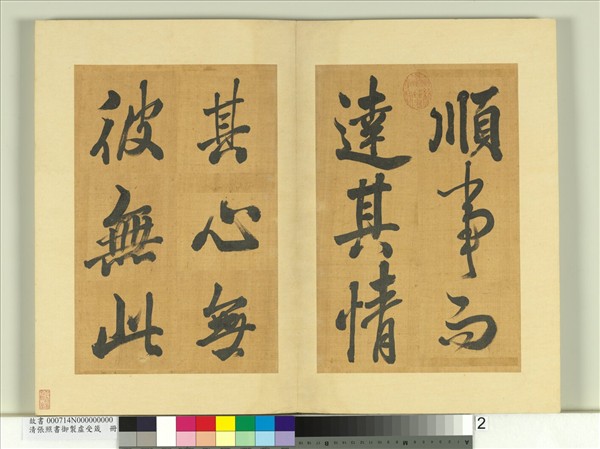 順事而
達其情
其心無
彼無此
故書 000714N000000000
清張照書御製虛受箴 冊
2